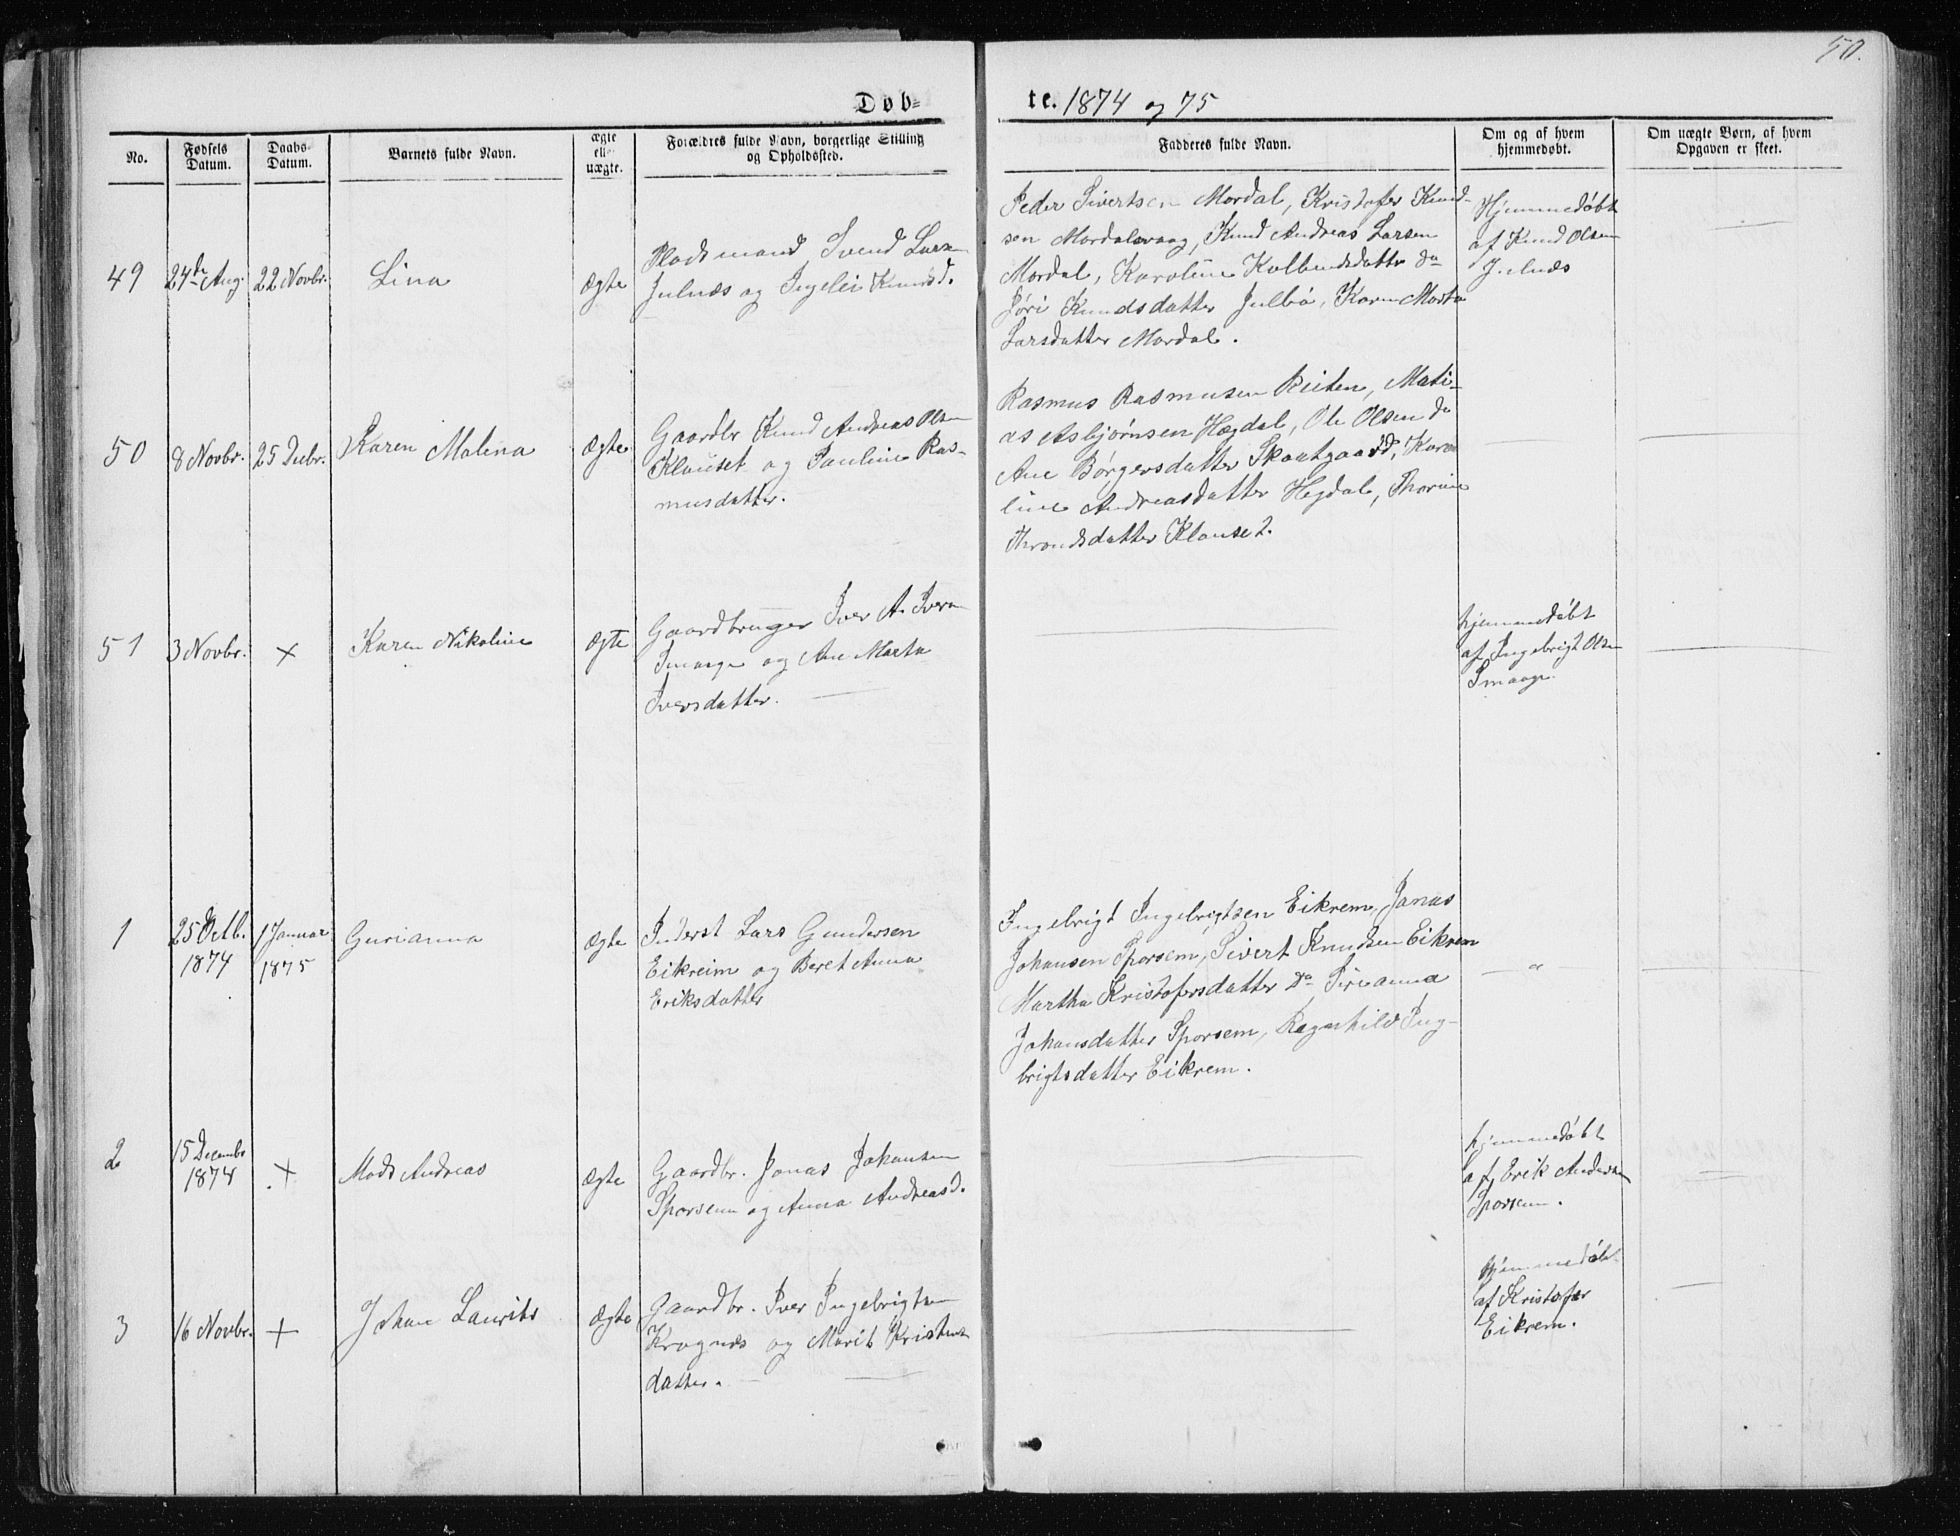 50.
Døb-
te. 1874 og 75
No.
Fødsels Datum.
Daabs-Datum.
Barnets fulde Navn.
ægte ell. uægte.
Forældres fulde Navn, borgerlige Stilling og Opholdssted.
Fadderes fulde Navn.
Om og af hvem hjemmedøbt.
Om uægte Børn, af hvem Opgaven er skeet.
49
24de Aug.
22 Novbr.
Lina
Ægte
Pladsmand Svend Lars-
Julnæs og Ingelei Knudsd.
Peder Sivertsen Mordal, Kristofer Knud-
sen Mordalsvaag, Knud Andreas Larsen
Mordal, Karoline Kolbendsdatter do
Jøri Knudsdatter Julbø, Karen Marta
Larsdatter Mordal.
Hjemmedøbt
af Knud Olsen
Julnæs
50
8 Novbr.
25 Decbr.
Karen Malena
Ægte
Gaardbr Knud Andreas Olsen
Klauset og Pauline Ras-
musdatter.
Rasmus Rasmusen Reiten, Mati-
as Asbjørnsen Hægdal, Ole Olsen do
Ane Børgersdatter Skaatgaard, Karo
line Andreasdatter Hegdal, Thorine
Throndsdatter Klauset.
51
3 Novbr.
×
Karen Nikoline
Ægte
Gaardbruger Iver A. Ivers
Smaage og Ane Marta
Iversdatter.
hjemmedøbt
af Ingebrigt Olsen
Smaage.
1
25 Octb.
1874
1 Januar
1875
Gurianna
Ægte
Inderst Lars Gundersen
Eikreim og Beret Anna
Eriksdatter
Ingebrigt Ingebrigtsen Eikrem, Jonas
Johansen Sporsem, Sivert Knudsen Eikrem
Martha Kristofersdatter Do Sirianna
Johansdatter Sporsem, Ragnhild Ing-
brigtsdatter Eikrem.
2
15 Decembr
1874
×
Mads Andreas
Ægte
Gaardbr. Jonas Johansen
Sporsem og Anna Andreasd.
hjemmedøbt
af Erik Andersen
Sporsem.
3
16 Novbr.
+
Johan Laurits
Ægte
Gaardbr. Iver Ingebrigtsen
Kragnæs og Marit Kristens
datter.
Hjemmedøbt
af Kristofer
Eikrem.